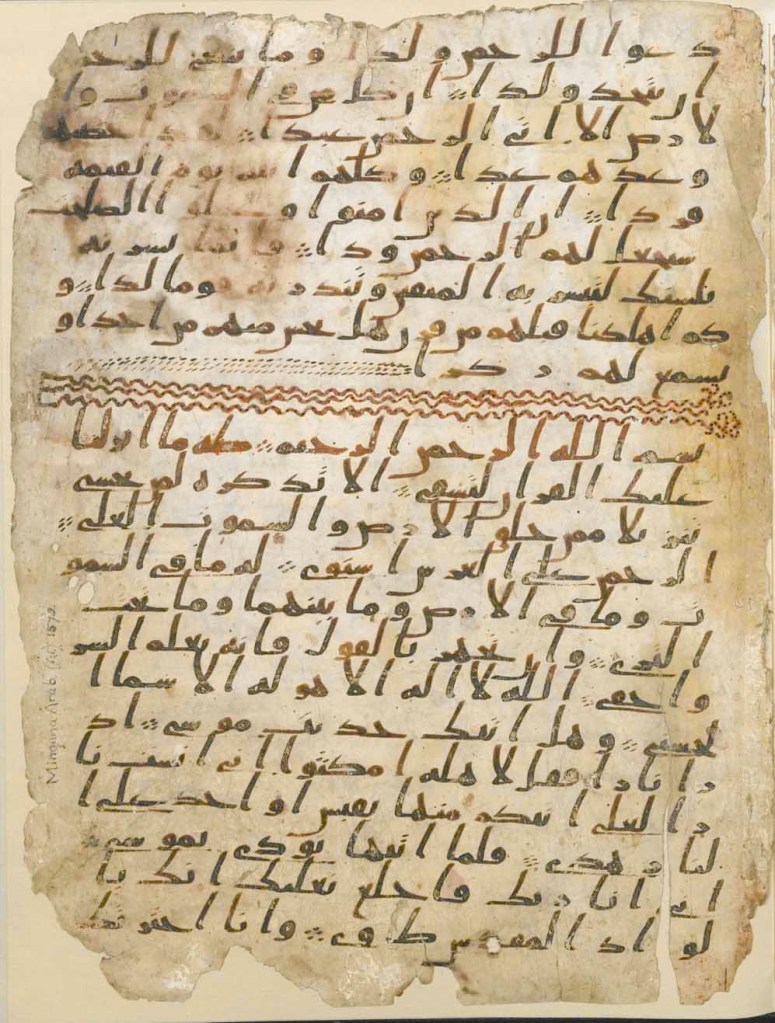 دعوا للرحمن ولدا وما ينبغي للرحمن
ان يتخذ ولدا ان كل من في السموت وا
لارض الا اتي الرحمن عبدا لقد احصيهم
وعدهم عدا وكلهم اتيه يوم القيمة
فردا ان الذين امنوا وعملوا الصلحت
سيجعل لهم الرحمن ودا فانما يسرنه
بلسنك لتبشر به المتقين وتنذر به قوما لدا و
كم اهلكنا قبلهم من قرن هل تحس منهم من احد او
تسمع لهم ركزا
بسم الله الرحمن الرحيم طه ما انزلنا
عليك القران لتشقي الا تذكرة لمن يخشي
تنزيلا ممن خلق الارض والسموت العلي
الرحمن علي العرش استوي له ما في السمو
ت وما في الارض وما بينهما وما تحت
الثري وان تجهر بالقول فانه يعلم السر
واخفي الله لا اله الا هو له الاسما ا
لحسني وهل اتيك حديث موسي اذ
را نارا فقل لاهله امكثوا اني انست نا
را لعلي اتيكم منها بقبس او اجد علي ا
لنار هدي فلما اتيها نودي يموسي
اني انا ربك فاخلع نعليك انك با
لواد المقدس طوي وانا اخترتك
Mingana Arab. 1572